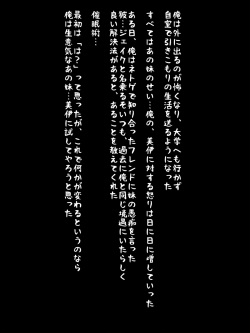 俺は外に出るのが怖くなり、大学へも行かず
自室で引きこもりの生活を送るようになった
すべてはあの妹のせい…俺の、美伊に対する怒りは日に日に増していった
ある日、俺はネトゲで知り合ったフレンドに妹の愚痴を言った
彼…ジェイクと名乗るそいつも、過去に俺と同じ境遇にいたらしく
良い解決法があると、あることを教えてくれた
催眠術…
最初は「は？」って思ったが、これで何かが変わるというのなら
俺は生意気なあの妹…美伊に試してやろうと思った